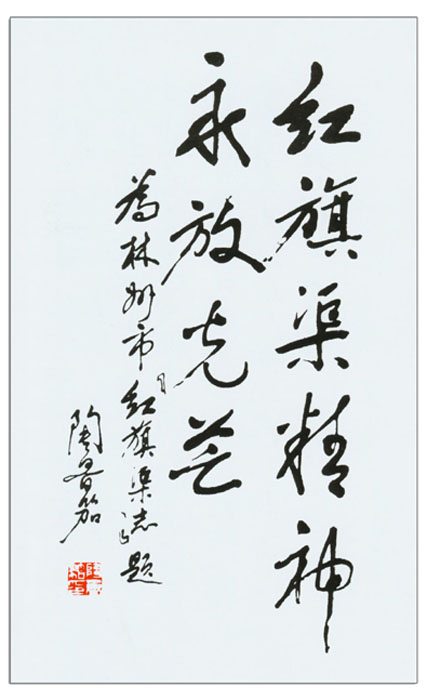 红旗渠精神
永放光芒
為林州市红旗渠志题
陶鲁笳